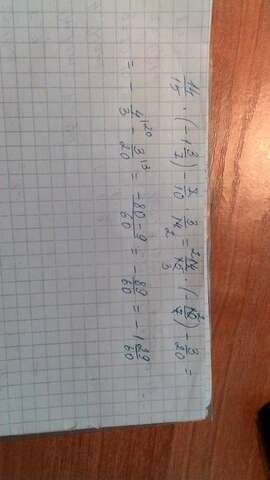 14/15 · (-1 3/7) - 7/10 · 3/14 2 = 2 14/15 3 · (-10 2/7) - 3/20 =
= - 4/3 |20 - 3/20 |3 = -80-9/60 = - 89/60 = -1 29/60